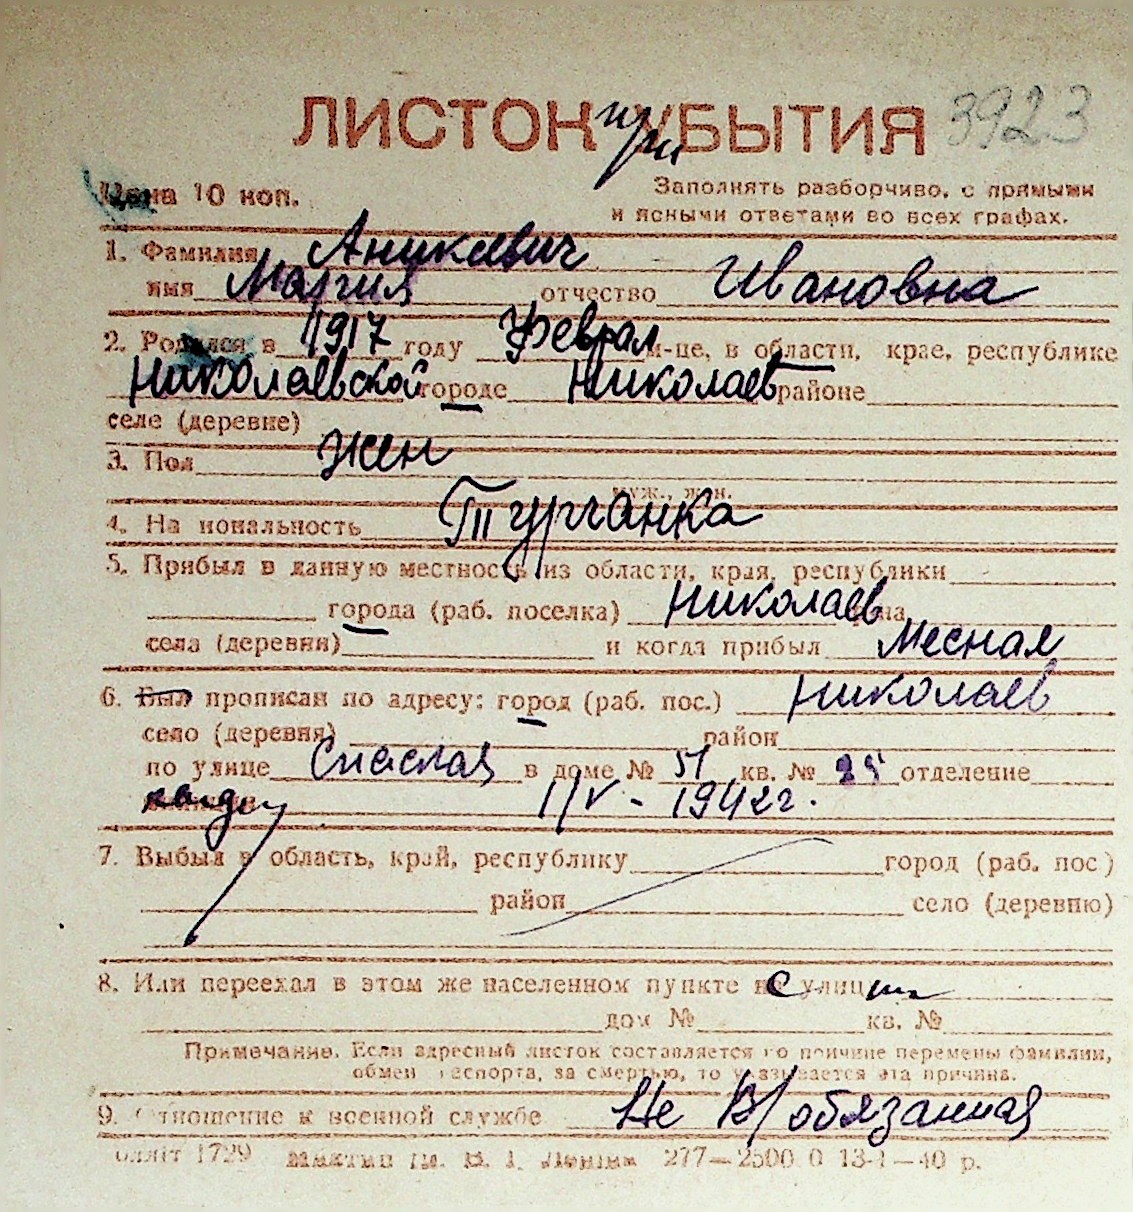 ЛИСТОК при УБЫТИЯ 3923
Цена 10 коп. Заполнять разборчиво, с прямыми
и ясными ответами во всех графах.
1. Фамилия Аникиевич
имя Мария отчество Ивановна
2. Родился в 1917 году Феврал м-це, в области, крае, республике
Николаевской городе Николаев районе
селе (деревне)
3. Пол Жен
муж., жен.
4. На иональность Турчанка
5. Прибыл в данную местность из области, края, республики
города (раб. поселка) Николаев
села (деревни) и когда прибыл Месная
6. Был прописан по адресу: город (раб. пос.) Николаев
село (деревня) район
по улице Спаская в доме № 51 кв. № 25 отделение
1/V - 1942 г.
7. Выбыл в область, край, республику город (раб. пос)
район село (деревню)
8. Или переехал в этом же населенном пункте с улицы
дом № кв. №
Примечание. Если адресный листок составляется по причине перемены фамилии,
обмен паспорта, за смертью, то указывается эта причина.
9. Отношение к военной службе Не В/обязанная
1729 ім. В. І. Леніна 277—2500 0 13-1—40 р.